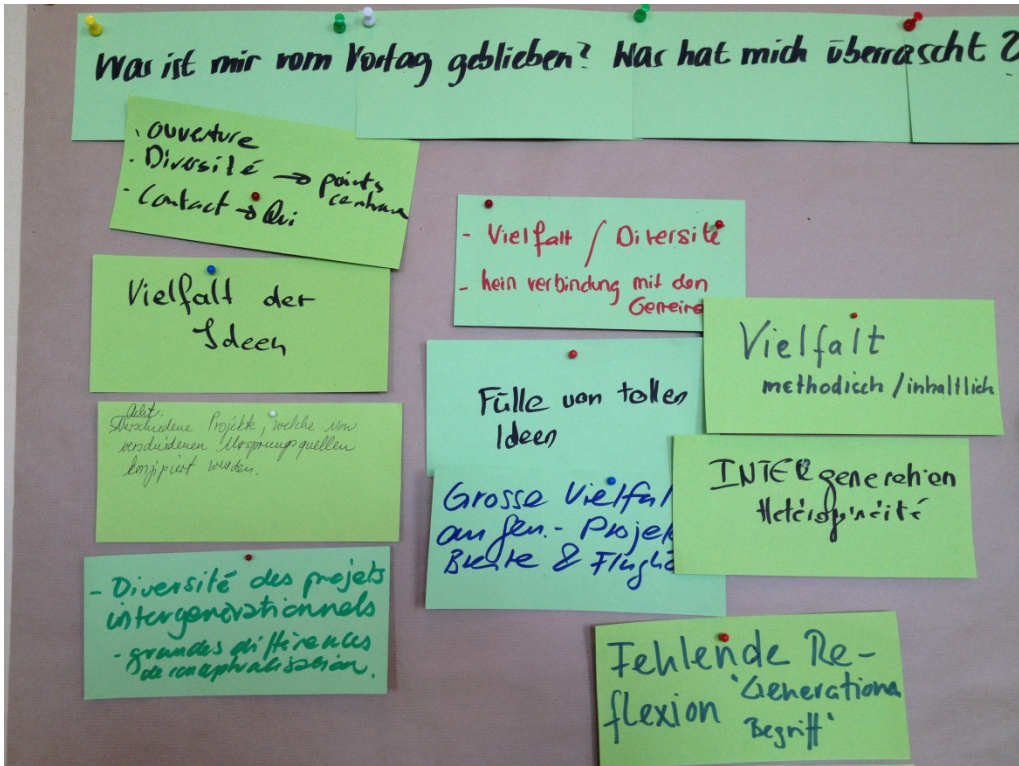 Was ist mir vom Vortag geblieben? Was hat mich überrascht ?
- ouverture
- Diversité → points
centraux
- Contact → Qui
Vielfalt der
Ideen
Verschiedene Projekte, welche von
verschiedenen Ursprungsquellen
konzipiert wurden.
- Diversité des projets
intergénérationnels
- grandes différences
de conceptualisation.
- Vielfalt / Diversité
- kein verbindung mit den
Gemein
Fülle von tollen
Ideen
Grosse Vielfal
an Gen.- Projek
Breite & Flughö
Vielfalt
methodisch / inhaltlich
INTERgeneration
Hétérogénéité
Fehlende Re-
flexion "Generationen
Begriff"